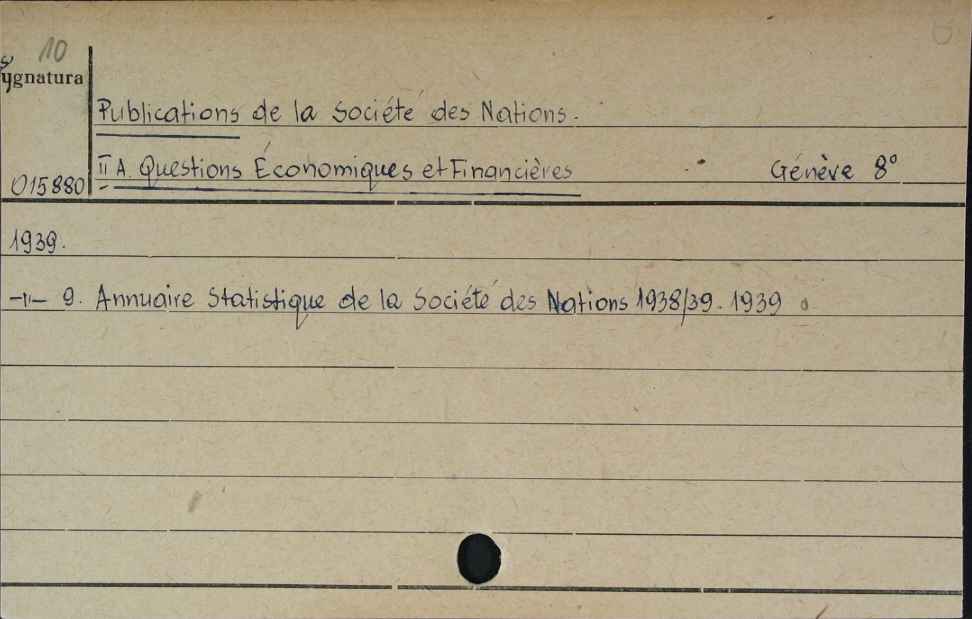 10
Sygnatura
Publications de la Société des Nations.
II A. Questions Économiques et Financières Génève 8°
015880
1939.
–〃– 9. Annuaire Statistique de la Société des Nations 1938/39. 1939